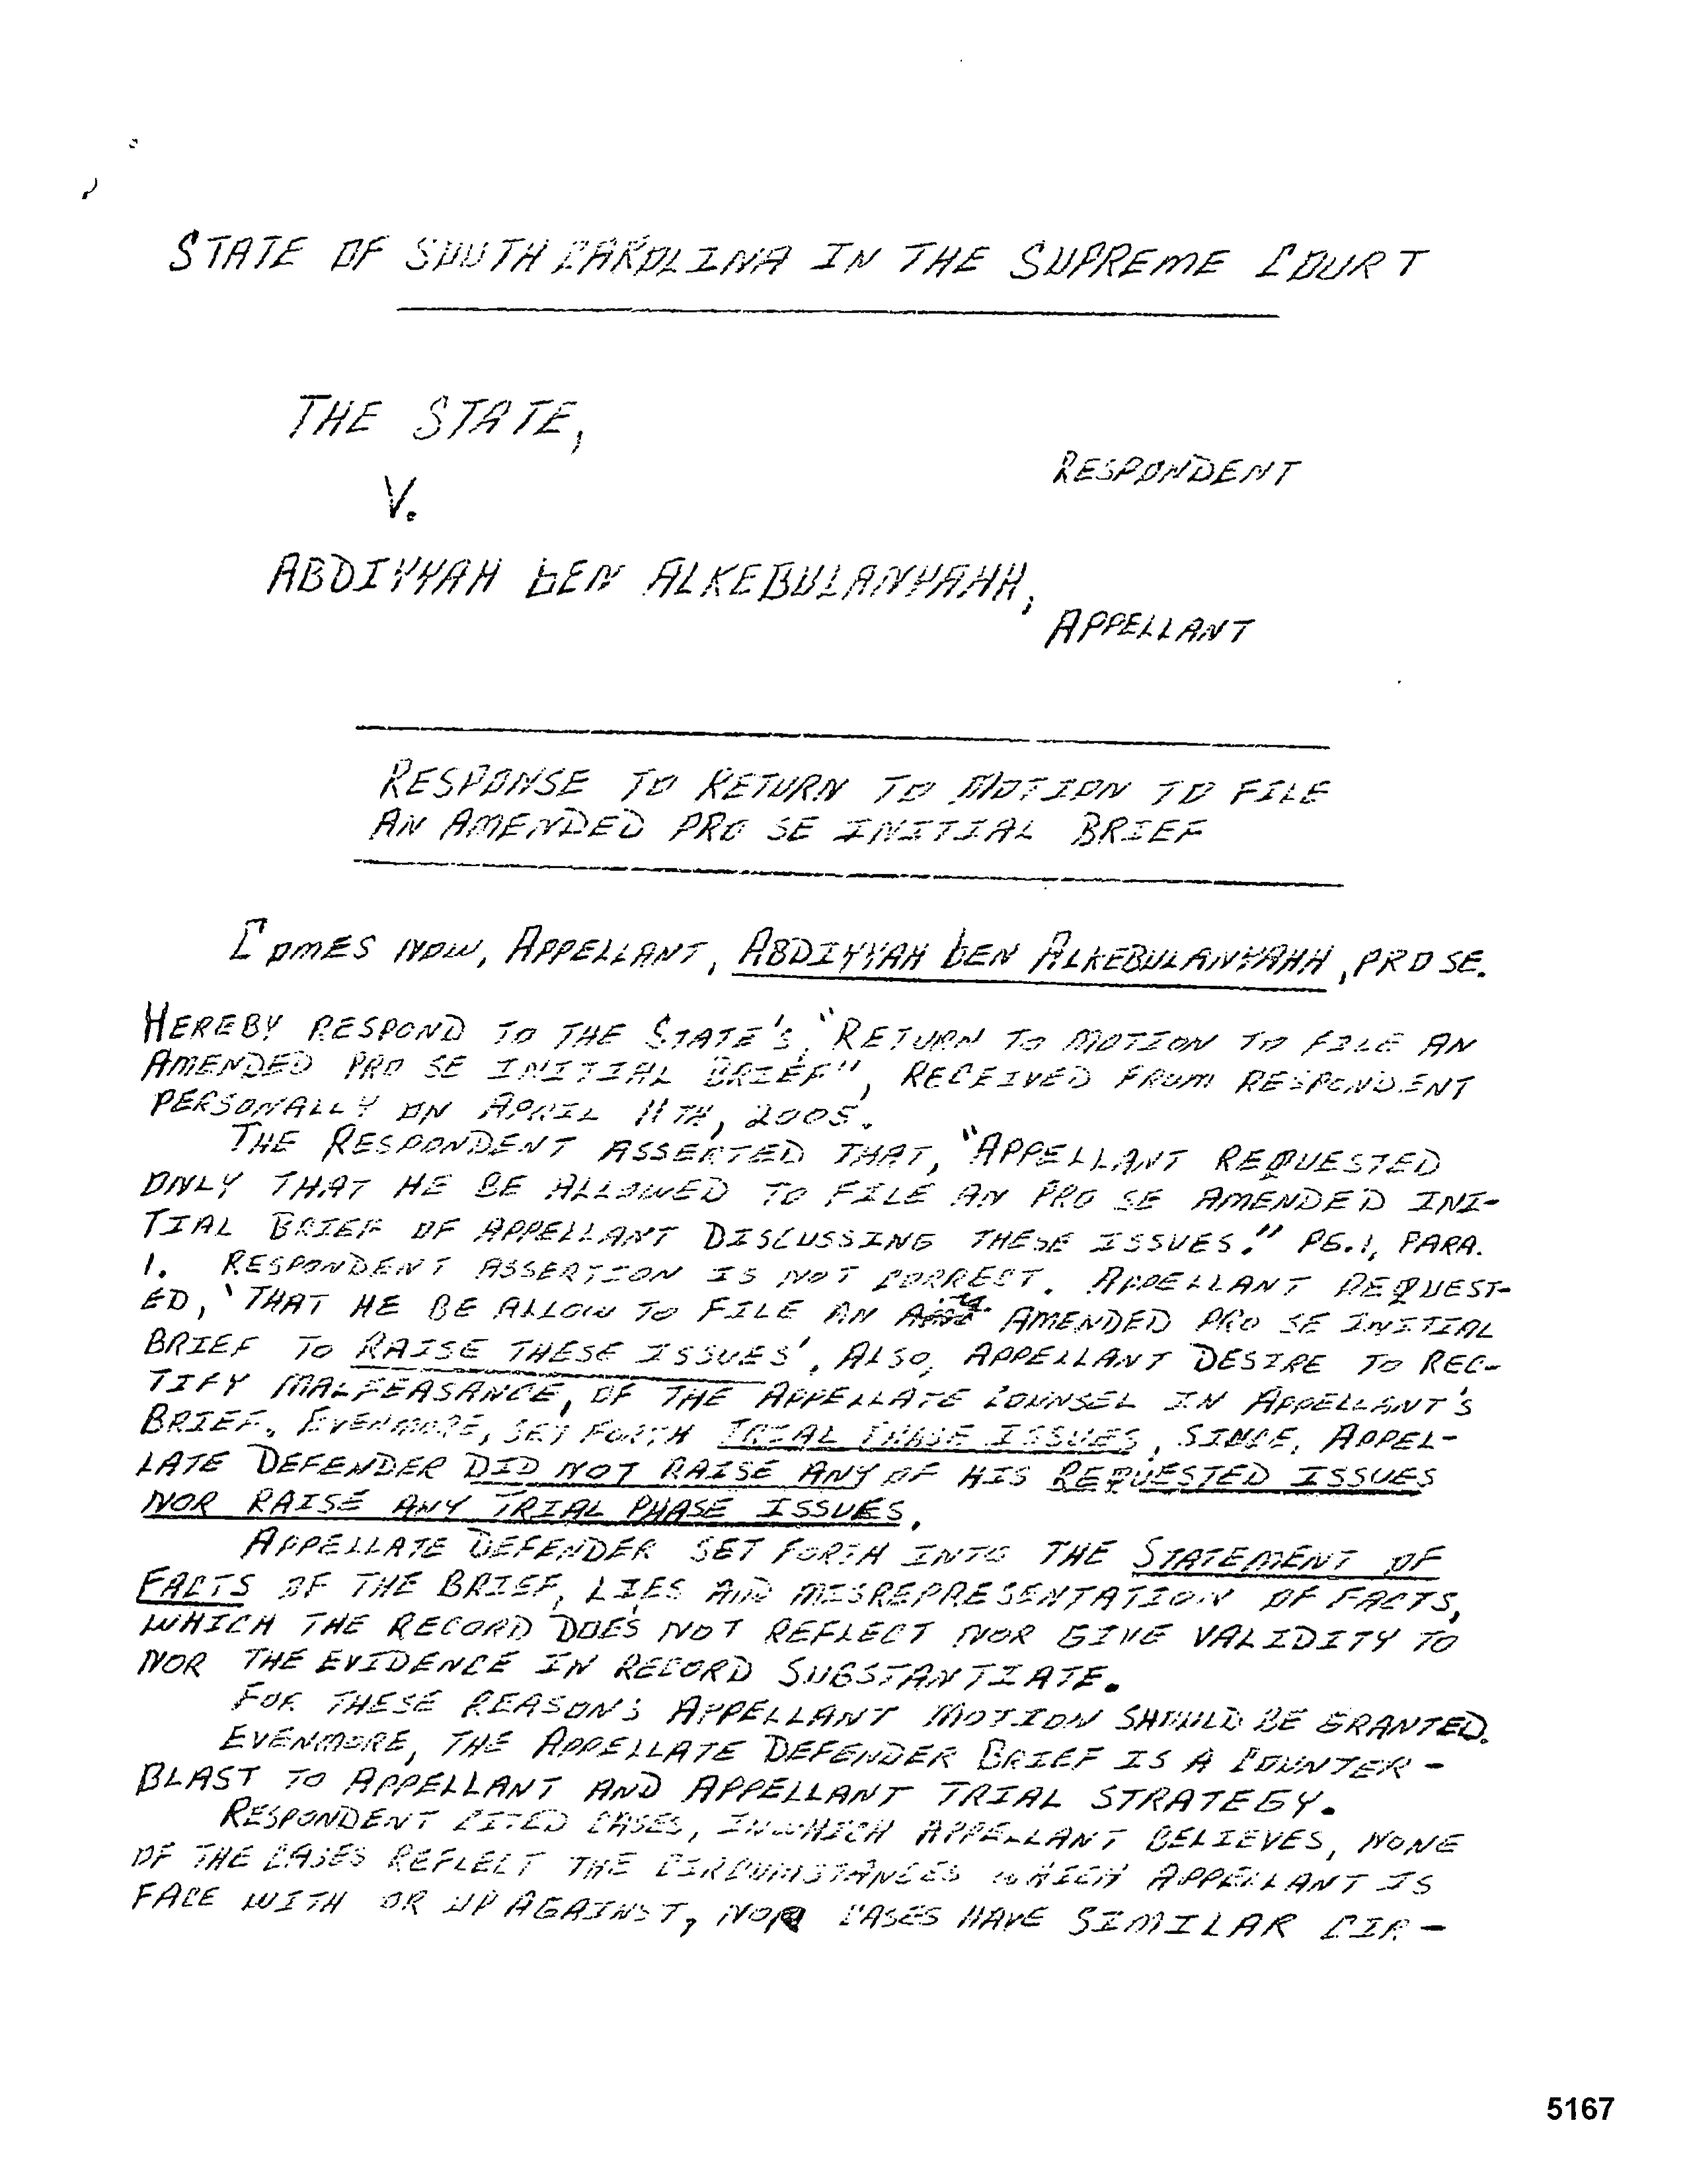 STATE OF SOUTH CAROLINA IN THE SUPREME COURT
THE STATE,
RESPONDENT
V.
ABDIYYAH bEN ALKEBULANYAHH,
APPELLANT
RESPONSE TO RETURN TO MOTION TO FILE
AN AMENDED PRO SE INITIAL BRIEF
COMES NOW, APPELLANT, ABDIYYAH bEN ALKEBULANYAHH, PRO SE.
HEREBY RESPOND TO THE STATE'S, "RETURN TO MOTION TO FILE AN
AMENDED PRO SE INITIAL BRIEF", RECEIVED FROM RESPONDENT
PERSONALLY ON APRIL 11TH, 2005.
THE RESPONDENT ASSERTED THAT, "APPELLANT REQUESTED
ONLY THAT HE BE ALLOWED TO FILE AN PRO SE AMENDED INI-
TIAL BRIEF OF APPELLANT DISCUSSING THESE ISSUES." PG. 1, PARA.
1. RESPONDENT ASSERTION IS NOT CORRECT. APPELLANT REQUEST-
ED, 'THAT HE BE ALLOW TO FILE AN AMENDED PRO SE INITIAL
BRIEF TO RAISE THESE ISSUES'. ALSO, APPELLANT DESIRE TO REC-
TIFY MALFEASANCE, OF THE APPELLATE COUNSEL IN APPELLANT'S
BRIEF. EVENMORE, SET FORTH TRIAL PHASE ISSUES, SINCE, APPEL-
LATE DEFENDER DID NOT RAISE ANY OF HIS REQUESTED ISSUES
NOR RAISE ANY TRIAL PHASE ISSUES.
APPELLATE DEFENDER SET FORTH INTO THE STATEMENT OF
FACTS OF THE BRIEF, LIES AND MISREPRESENTATION OF FACTS,
WHICH THE RECORD DOES NOT REFLECT NOR GIVE VALIDITY TO
NOR THE EVIDENCE IN RECORD SUBSTANTIATE.
FOR THESE REASON'S APPELLANT MOTION SHOULD BE GRANTED.
EVENMORE, THE APPELLATE DEFENDER BRIEF IS A COUNTER-
BLAST TO APPELLANT AND APPELLANT TRIAL STRATEGY.
RESPONDENT CITED CASES, INWHICH APPELLANT BELIEVES, NONE
OF THE CASES REFLECT THE CIRCUMSTANCES WHICH APPELLANT IS
FACE WITH OR UP AGAINST, NOR CASES HAVE SIMILAR CIR-
5167